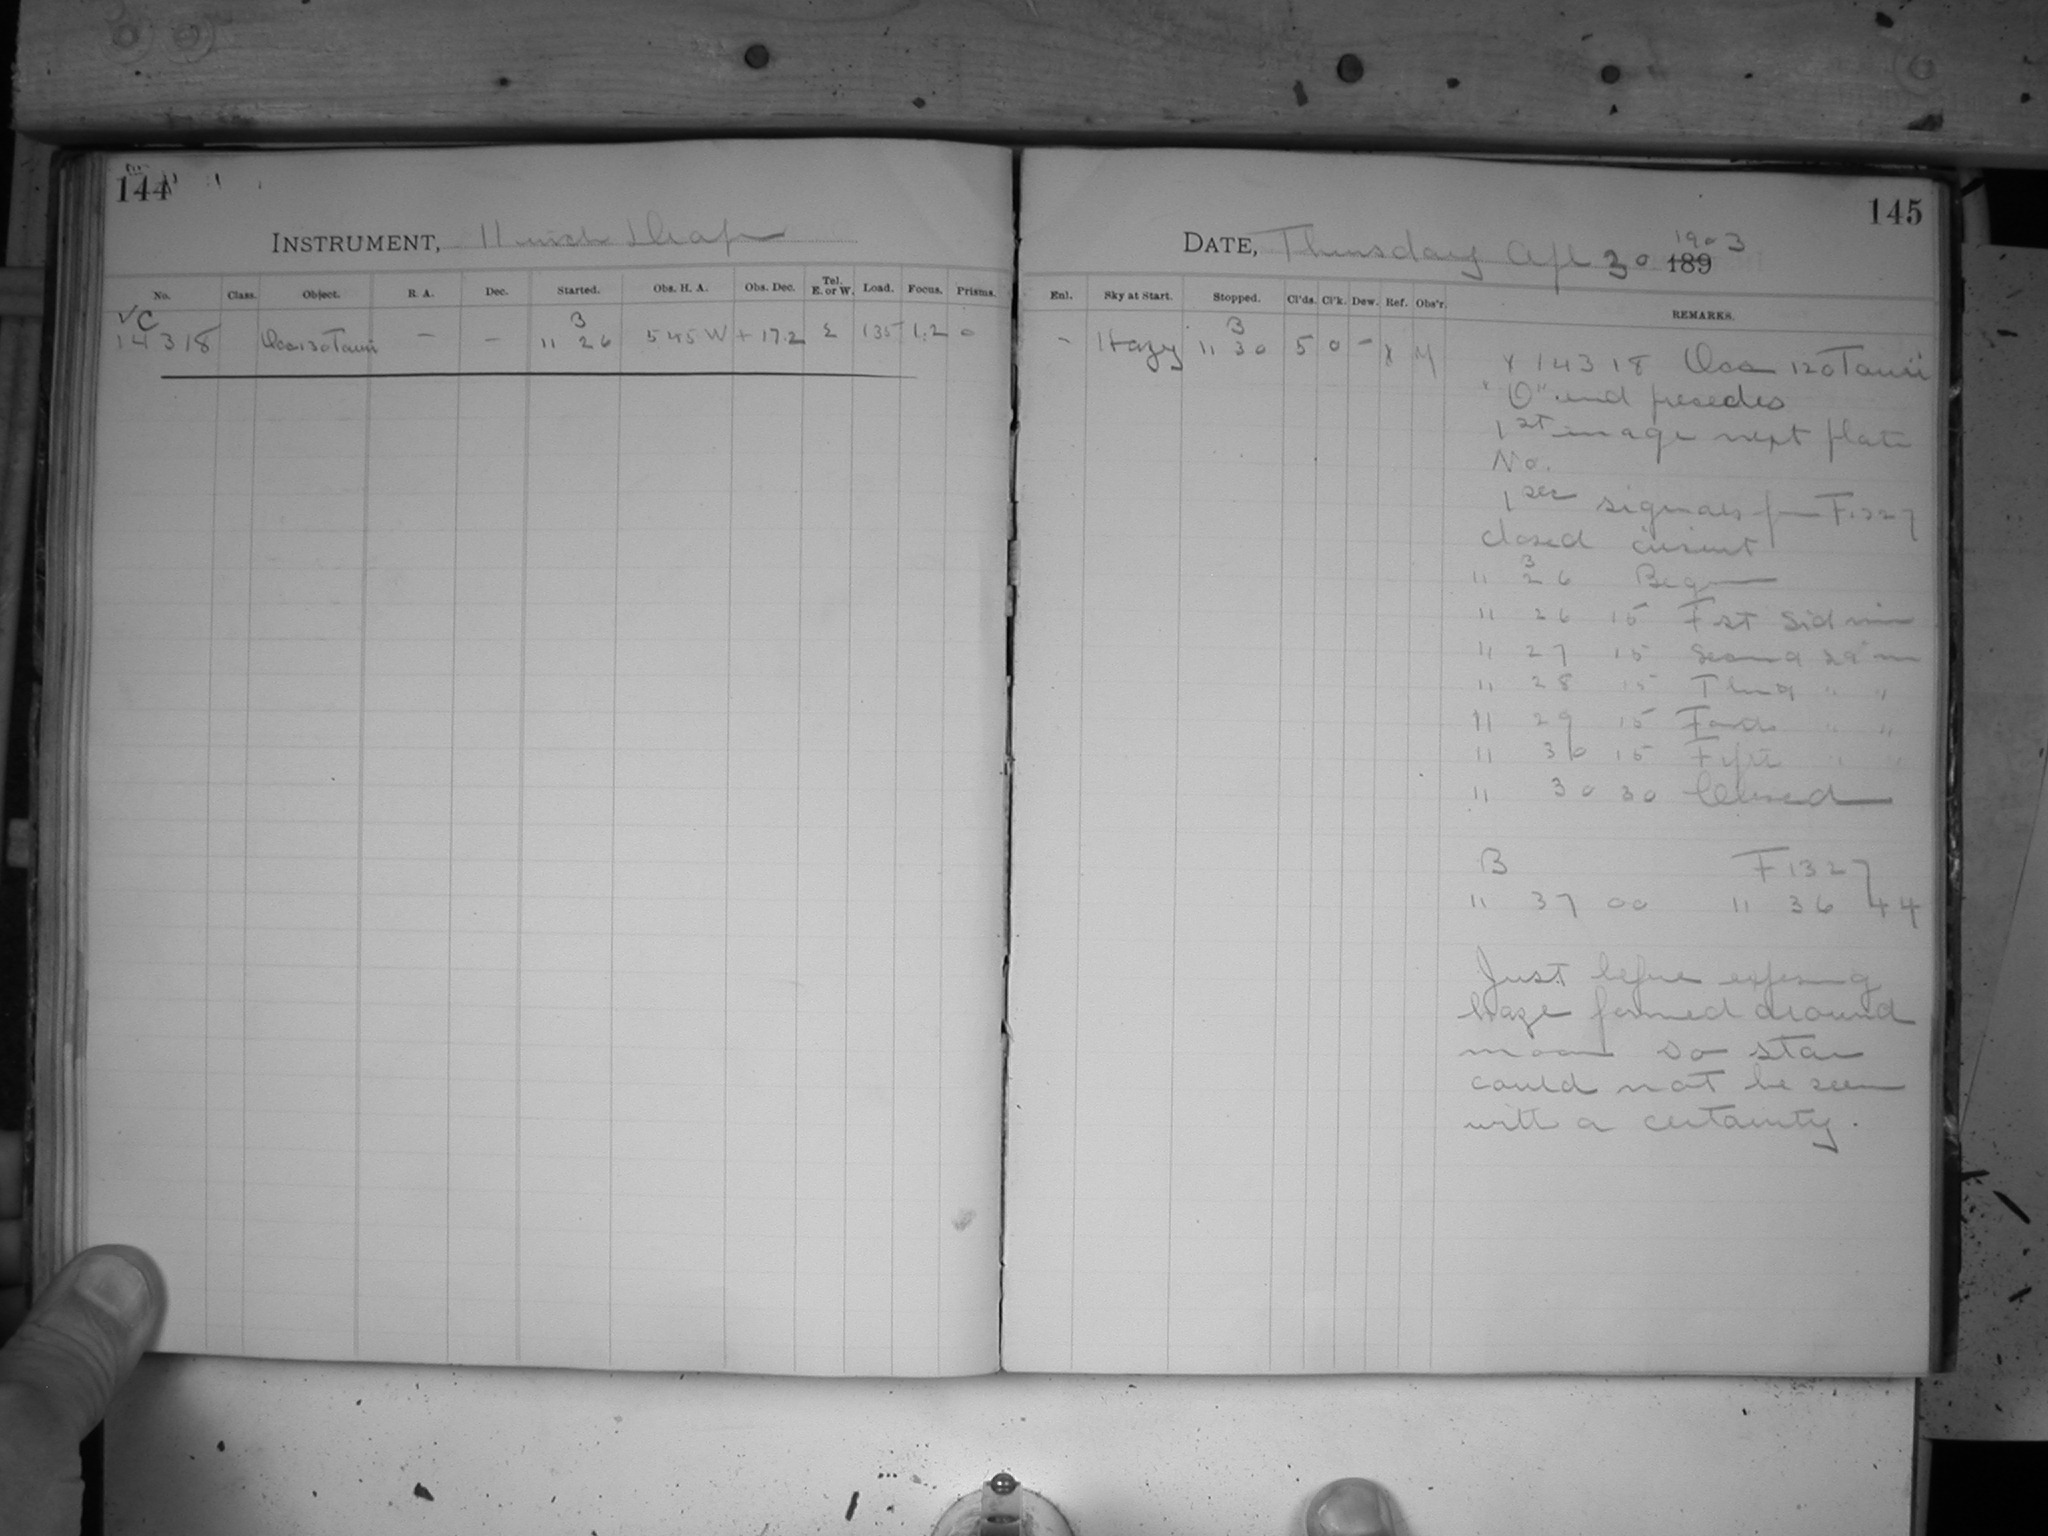 144
INSTRUMENT, 11 inch Drap
No. Class. Object. R. A. Dec. Started. Obs. H. A. Obs. Dec. Tel. E. or W. Load. Focus. Prisms.
√C B
14318 Occ 120 Tauri – – 11 26 5 45 W + 17.2 E 135 1.2 0
145
DATE, Thursday Apl 30 1903 189
Enl. Sky at Start. Stopped. Cl'ds. Cl'k. Dew. Ref. Obs'r. REMARKS.
B
– Hazy 11 30 5 0 – X M
X 14318 Occ 120 Tauri
"O" end precedes
1st image next plate
No.
1 sec signals from F1327
closed circuit
B
11 26 Began
11 26 15 First Sid min
11 27 15 Second Sid m
11 28 15 Third " "
11 29 15 Fourth " "
11 30 15 Fifth " "
11 30 30 Closed
B F1327
11 37 00 11 36 44
Just before exposing
haze formed around
moon so star
could not be seen
with a certainty.